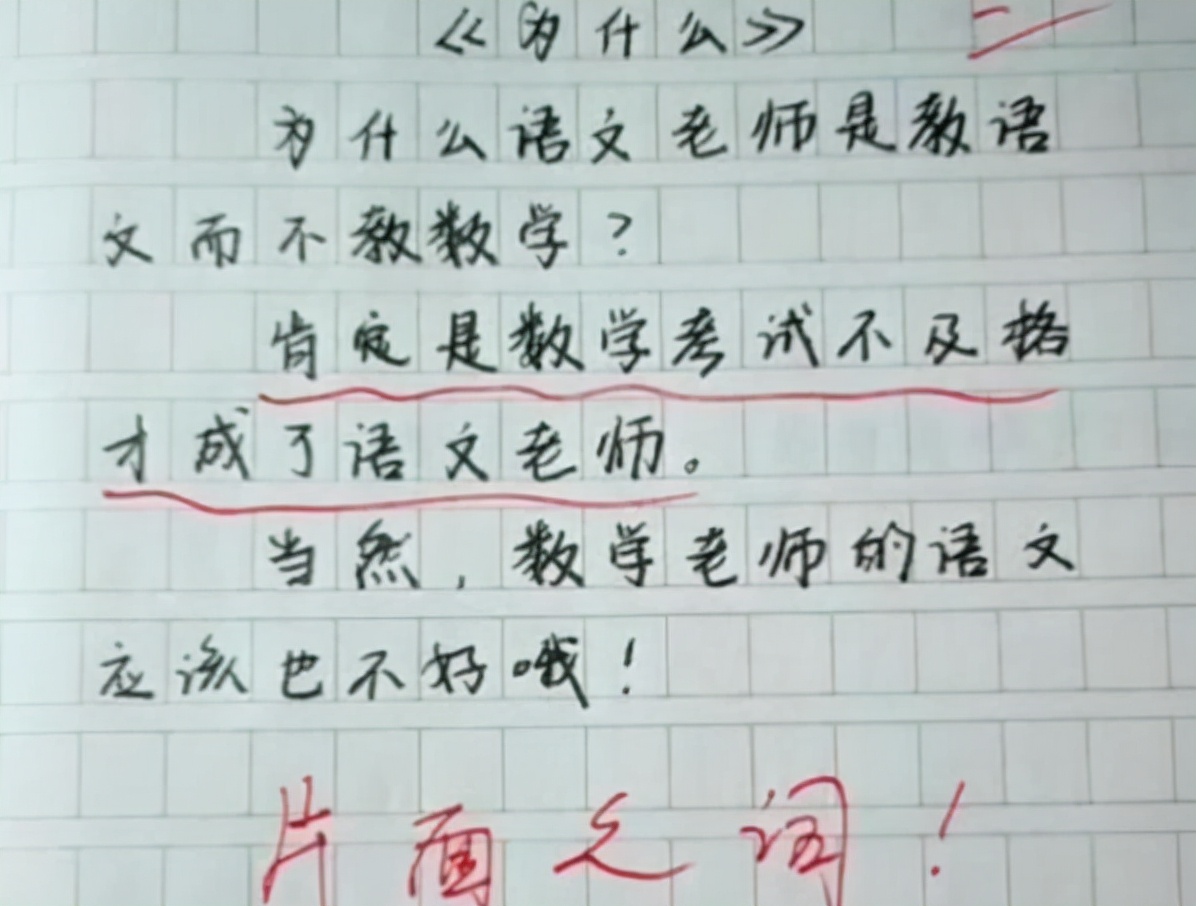 《为什么》
为什么语文老师是教语
文而不教数学？
肯定是数学考试不及格
才成了语文老师。
当然，数学老师的语文
应该也不好哦！
片面之词！